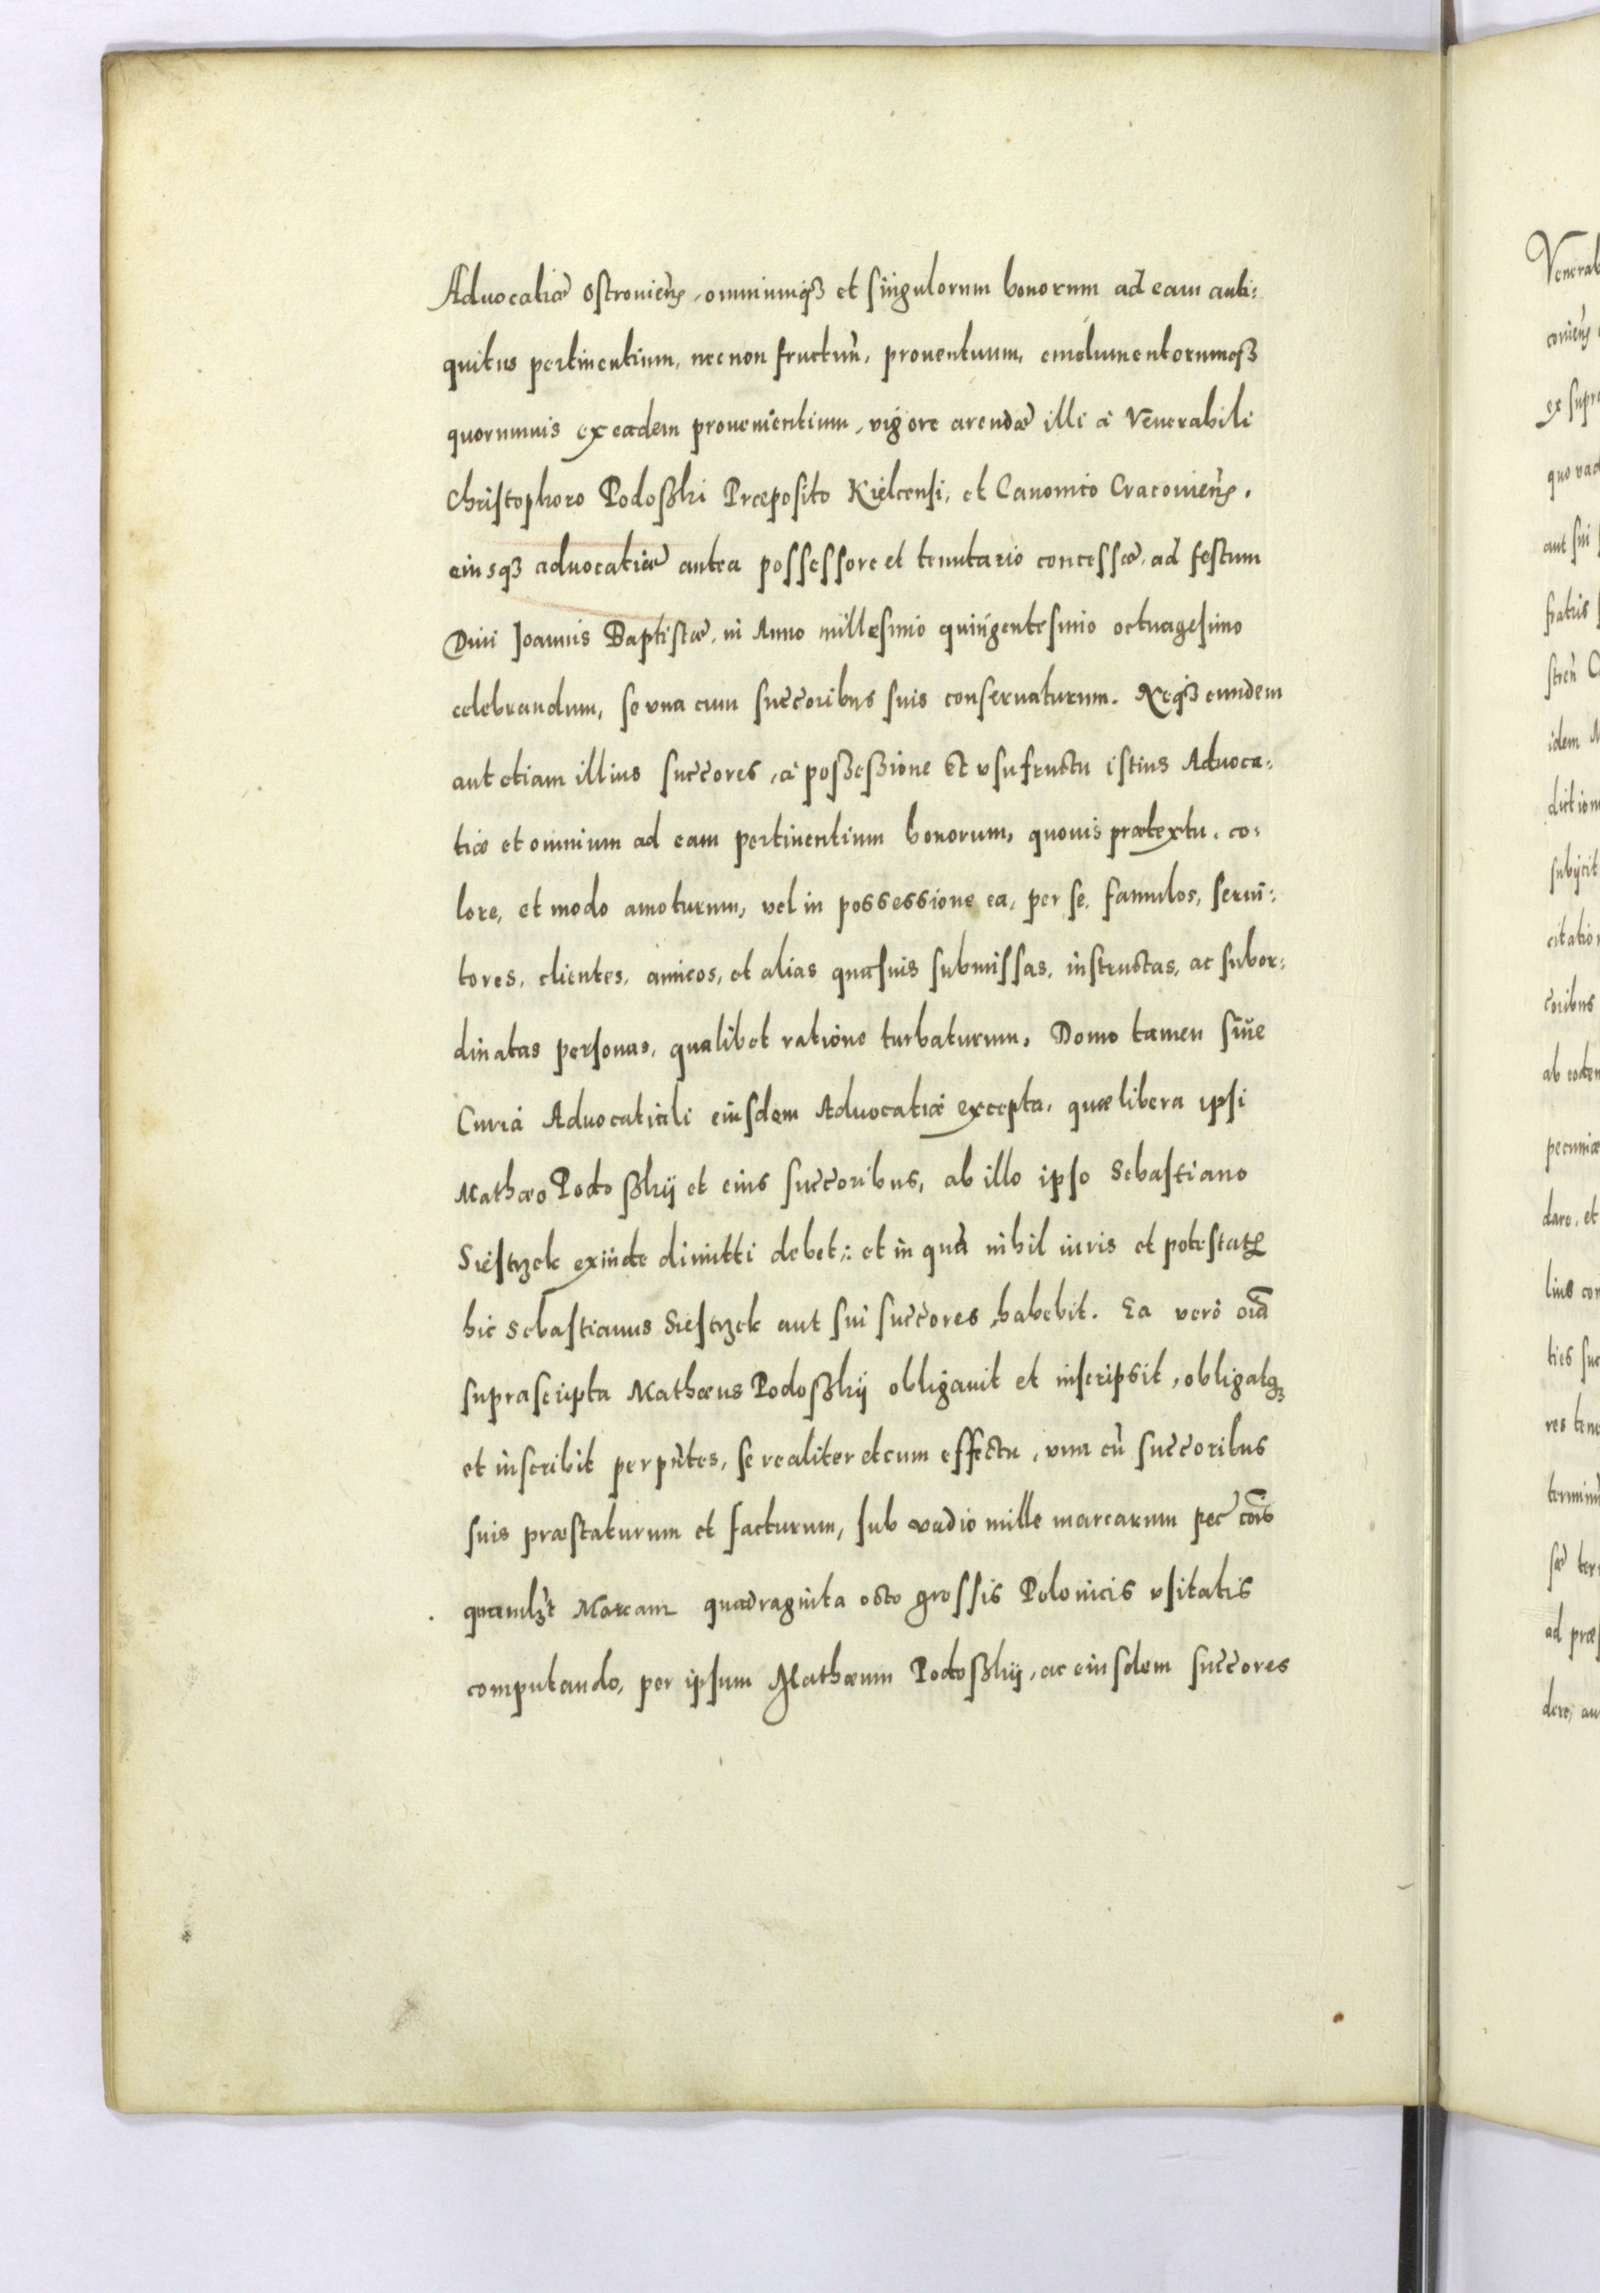 Aduocatiæ Ostrouieñ, omniumqȝ et singulorum bonorum ad eam anti:
quitus pertinentium, necnon fructuũ, prouentuum, emolumentorumqȝ
quorumuis ex eadem prouenientium, vigore arendæ illi à Venerabili
Christophoro Podoßki Præposito Kielcensi, et Canonico Cracouieñ,
eiusqȝ aduocatiæ antea possessore et tenutario concessæ, ad festum
Diui Joannis Baptistæ, in Anno millesimo quingentesimo octuagesimo
celebrandum, se vna cum succoribus suis conseruaturum. Neqȝ eundem
aut etiam illius succores, à poßeßione et vsufructu istius Aduoca:
tiæ et omnium ad eam pertinentium bonorum, quouis prætextu, co:
lore, et modo amoturum, vel in possessione ea, per se, famulos, serui:
tores, clientes, amicos, et alias quasuis submissas, instructas, ac subor:
dinatas personas, qualibet ratione turbaturum. Domo tamen siue
Curia Aduocatiali eiusdem Aduocatiæ excepta, quæ libera ipsi
Mathæo Podoßkij et eius succoribus, ab illo ipso Sebastiano
Siestrzek exinde dimitti debet: et in qua nihil iuris et potestatꝭ
hic Sebastianus Siestrzek aut sui succores, habebit. Ea verò oiã
suprascripta Mathæus Podoßkij obligauit et inscripsit, obligatqȝ
et inscribit per pñtes, se realiter et cum effectu, vna cũ succoribus
suis præstaturum et facturum, sub vadio mille marcarum pec coñis
quamlꝫt Marcam quadraginta octo grossis Polonicis vsitatis
computando, per ipsum Mathæum Podoßkij, ac eiusdem succores
Venerab
couieñ
ex supra
quo vad
aut sui
fratris
streñ
idem M
diction
subijcit
citation
coribus
ab eodem
pecuniæ
dare, et
lius con
ties suc
res tene
terminũ
sæ ter
ad præs
dere, au